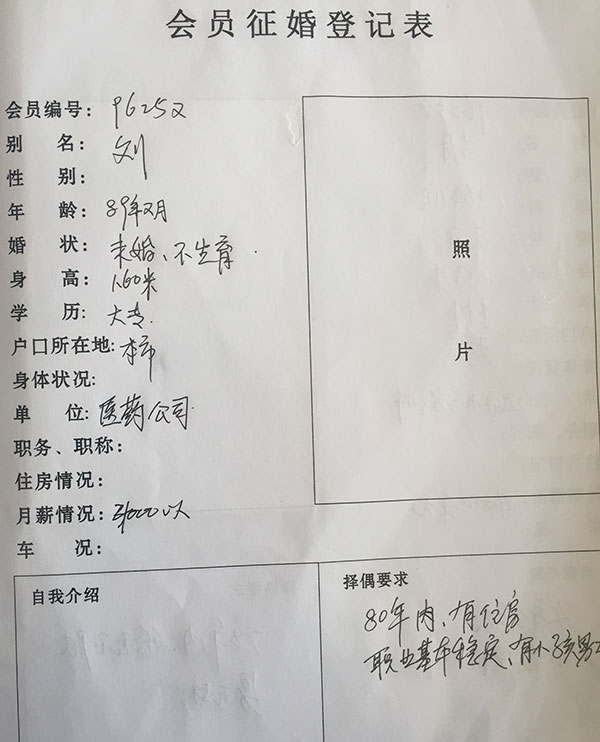 会员征婚登记表
会员编号: 96252
别 名: 刘
性 别:
年 龄: 89年2月
婚 状: 未婚、不生育.
身 高: 1.60米
学 历: 大专.
户口所在地: 本市
身体状况:
单 位: 医药公司
职务、职称:
住房情况:
月薪情况: 以
车 况:
照
片
自我介绍
择偶要求
80年内、有住
职业基本稳定、有小孩男